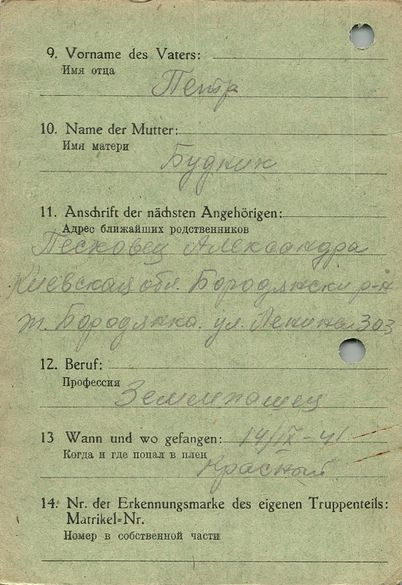 9. Vorname des Vaters:
Имя отца
Петр
10. Name der Mutter:
Имя матери
Будник
11. Anschrift der nächsten Angehörigen:
Адрес ближайших родственников
Песковец Александра
Киевская обл. Бородянски р-н
ул. Ленина 303
12. Beruf:
Профессия
Землепашец
13 Wann und wo gefangen: 14/IX-41
Когда и где попал в плен
Красный
14. Nr. der Erkennungsmarke des eigenen Truppenteils:
Matrikel-Nr.
Номер в собственной части